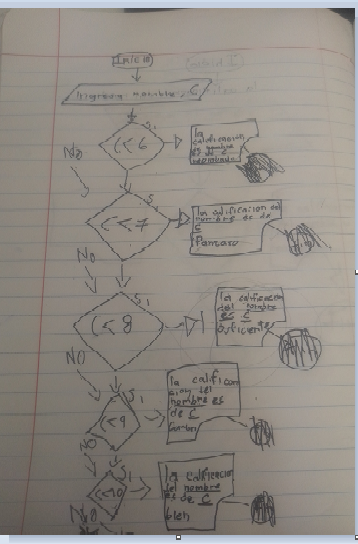 Inicio
Ingresa nombre, C
C<6
Si
la
calificacion
de nombre
es de C
reprobado
No
C<7
Si
la calificacion del
nombre es de
C
Panzaso
No
C<8
Si
la calificacion
del nombre
es C
suficiente
NO
<9
Si
la califican
cion del
nombre es
de C
NO
<10
Si
la calificacion
del nombre
es de C
bien
No